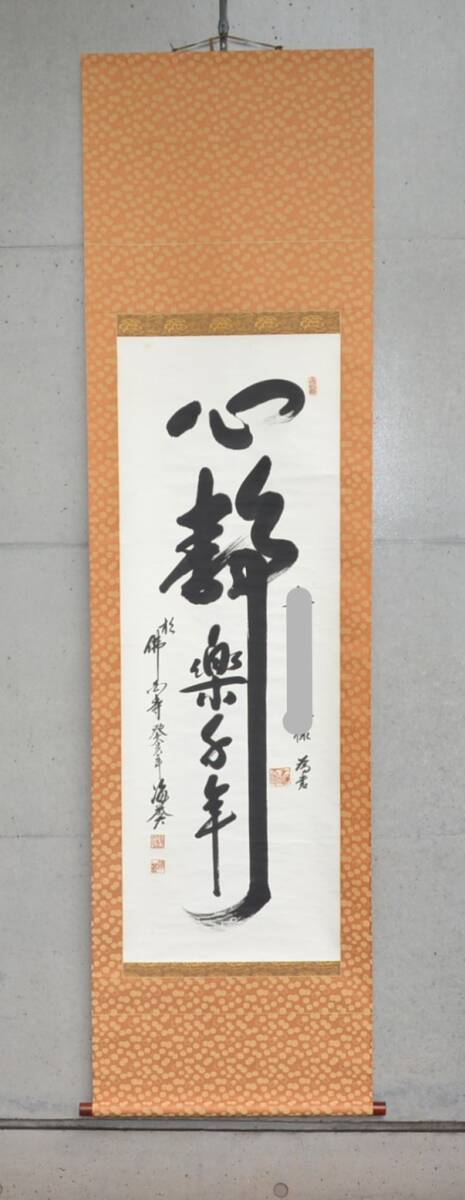 心静
樂千年
為書
於佛國寺癸亥年海葵